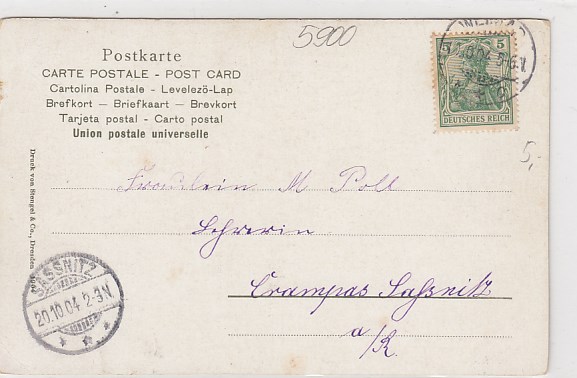 5900
Postkarte
CARTE POSTALE - POST CARD
Cartolina Postale - Levelezö-Lap
Brefkort — Briefkaart — Brevkort
Tarjeta postal - Carto postal
Union postale universelle
5
5
DEUTSCHES REICH
5,-
Druck von Stengel & Co., Dresden
Fräulein M Poll
Lehrerin
Crampas Saßnitz
a/R.
SASSNITZ
20.10.04 2-3N.